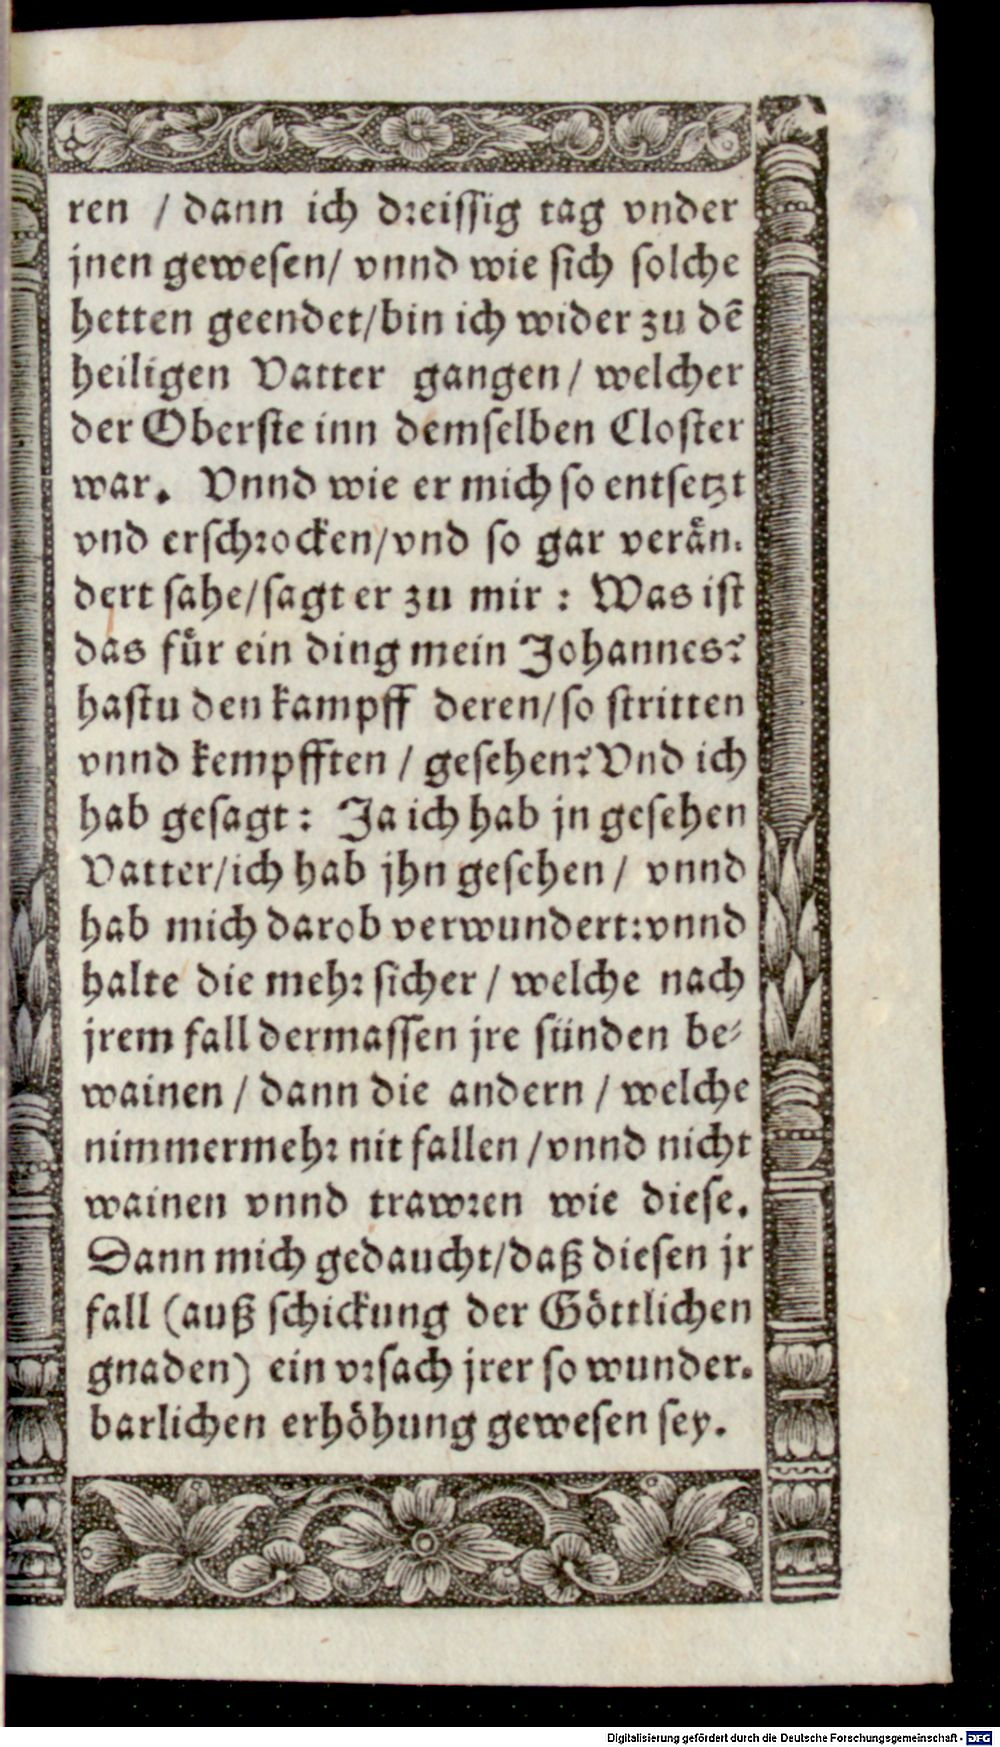 ren / dann ich dreissig tag vnder
jnen gewesen/ vnnd wie sich solche
hetten geendet/bin ich wider zu dẽ
heiligen Vatter gangen / welcher
der Oberste inn demselben Closter
war. Vnnd wie er mich so entsetzt
vnd erschrocken/vnd so gar verån-
dert sahe/sagt er zu mir : Was ist
das fůr ein ding mein Johannes?
hastu den kampff deren/so stritten
vnnd kempfften / gesehen? Vnd ich
hab gesagt : Ja ich hab jn gesehen
Vatter/ich hab jhn gesehen / vnnd
hab mich darob verwundert: vnnd
halte die mehr sicher / welche nach
jrem fall dermassen jre sünden be-
wainen / dann die andern / welche
nimmermehr nit fallen /vnnd nicht
wainen vnnd trawren wie diese.
Dann mich gedaucht/daß diesen jr
fall (auß schickung der Göttlichen
gnaden) ein vrsach jrer so wunder-
barlichen erhöhung gewesen sey.
Digitalisierung gefördert durch die Deutsche Forschungsgemeinschaft - DFG